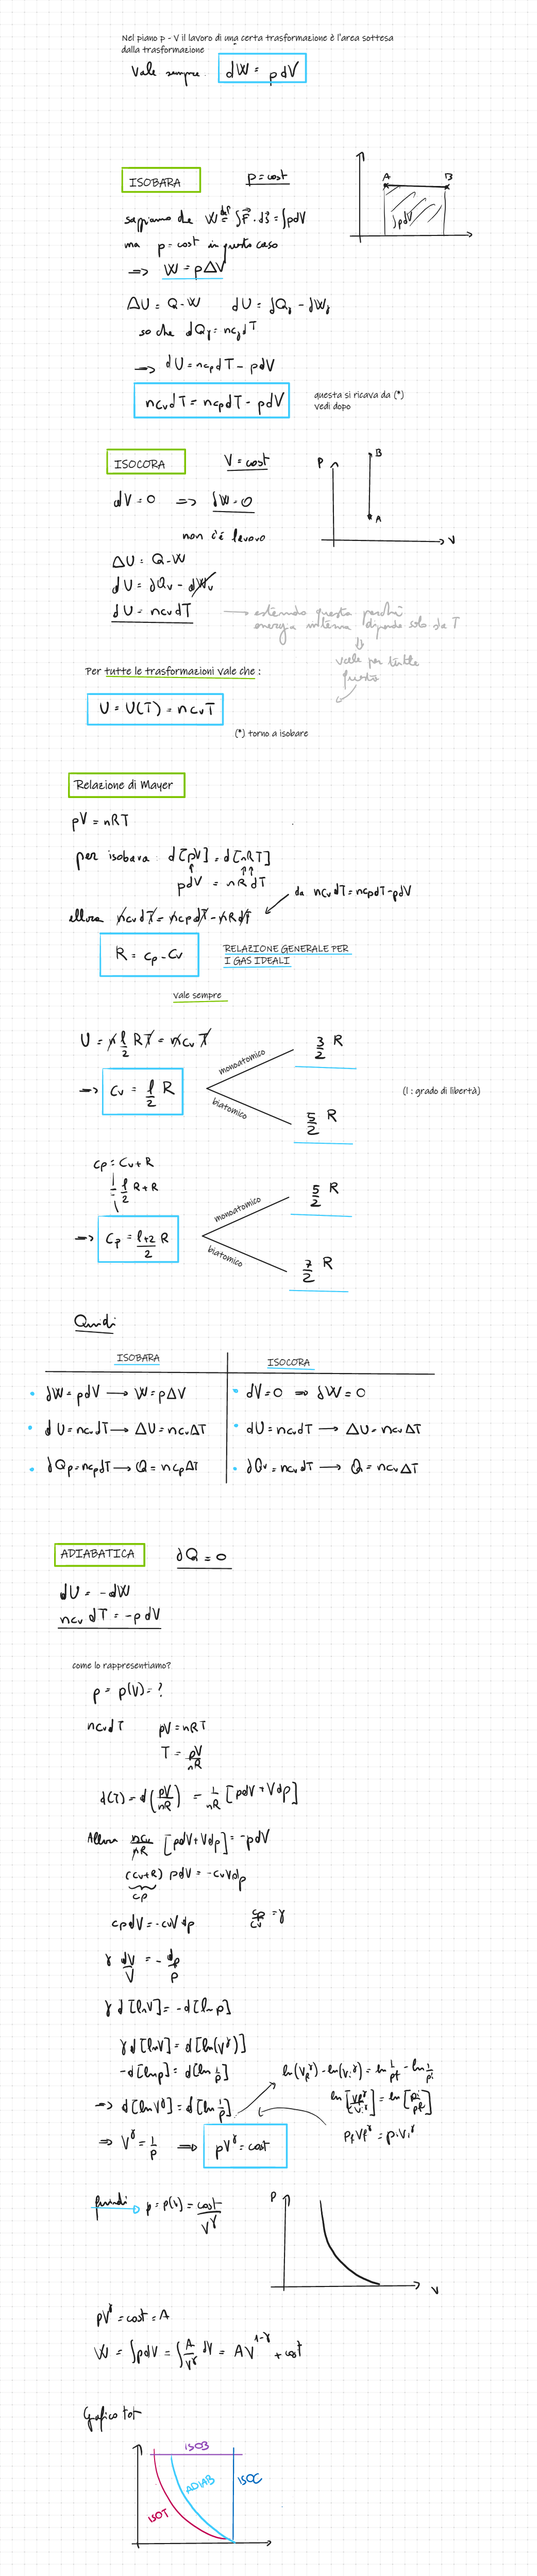 Nel piano p - V il lavoro di una certa trasformazione è l'area sottesa
dalla trasformazione
Vale sempre: dW = pdV
ISOBARA
p = cost
sappiamo che W def= ∫F⃗·ds⃗ = ∫pdV
ma p = cost in questo caso
=> W = pΔV
A B
∫pdV
ΔU = Q - W dU = δQ_γ - δW_γ
so che dQ_γ = nc_γdT
=> dU = nc_pdT - pdV
nc_vdT = nc_pdT - pdV
questa si ricava da (*)
vedi dopo
ISOCORA
V = cost
dV = 0 => δW = 0
non c'è lavoro
P
B
A
V
ΔU = Q - W
dU = δQ_v - dW_v
dU = nc_vdT
estendo questa perché
energia interna dipende solo da T
⇓
vale per tutte
questo
Per tutte le trasformazioni vale che :
U = U(T) = nc_vT
(*) torno a isobare
Relazione di Mayer
pV = nRT
per isobara: d[pV] = d[nRT]
pdV = nRdT
da nc_vdT = nc_pdT - pdV
allora nc_vdT = nc_pdT - nRdT
R = c_p - c_v
RELAZIONE GENERALE PER
I GAS IDEALI
vale sempre
U = n l/2 RT = nc_vT
=> c_v = l/2 R
monoatomico
3/2 R
biatomico
5/2 R
(l : grado di libertà)
c_p = c_v + R
= l/2 R + R
=> c_p = l+2/2 R
monoatomico
5/2 R
biatomico
7/2 R
Quindi
ISOBARA ISOCORA
• δW = pdV → W = pΔV • dV = 0 => δW = 0
• dU = nc_vdT → ΔU = nc_vΔT • dU = nc_vdT → ΔU = nc_vΔT
• δQ_p = nc_pdT → Q = nc_pΔT • δQ_v = nc_vdT → Q = nc_vΔT
ADIABATICA
δQ = 0
dU = -dW
nc_v dT = -p dV
come lo rappresentiamo?
p = p(V) = ?
nc_vdT pV = nRT
T = pV/nR
d(T) = d(pV/nR) = 1/nR [pdV + Vdp]
Allora nc_v/nR [pdV + Vdp] = -pdV
(c_v+R) pdV = -c_vVdp
c_p
c_pdV = -c_vV dp c_p/c_v = γ
γ dV/V = - dp/p
γ d[lnV] = -d[ln p]
γd[lnV] = d[ln(V^γ)]
-d[lnp] = d[ln 1/p]
ln(V_f^γ) - ln(V_i^γ) = ln 1/p_f - ln 1/p_i
=> d[lnV^γ] = d[ln 1/p]
ln[V_f^γ/V_i^γ] = ln[p_i/p_f]
=> V^γ = 1/p => pV^γ = cost
p_fV_f^γ = p_iV_i^γ
quindi p = p(V) = cost/V^γ
P
V
pV^γ = cost = A
W = ∫pdV = ∫A/V^γ dV = AV^1-γ + cost
Grafico tot
ISOB
ADIAB
ISOC
ISOT